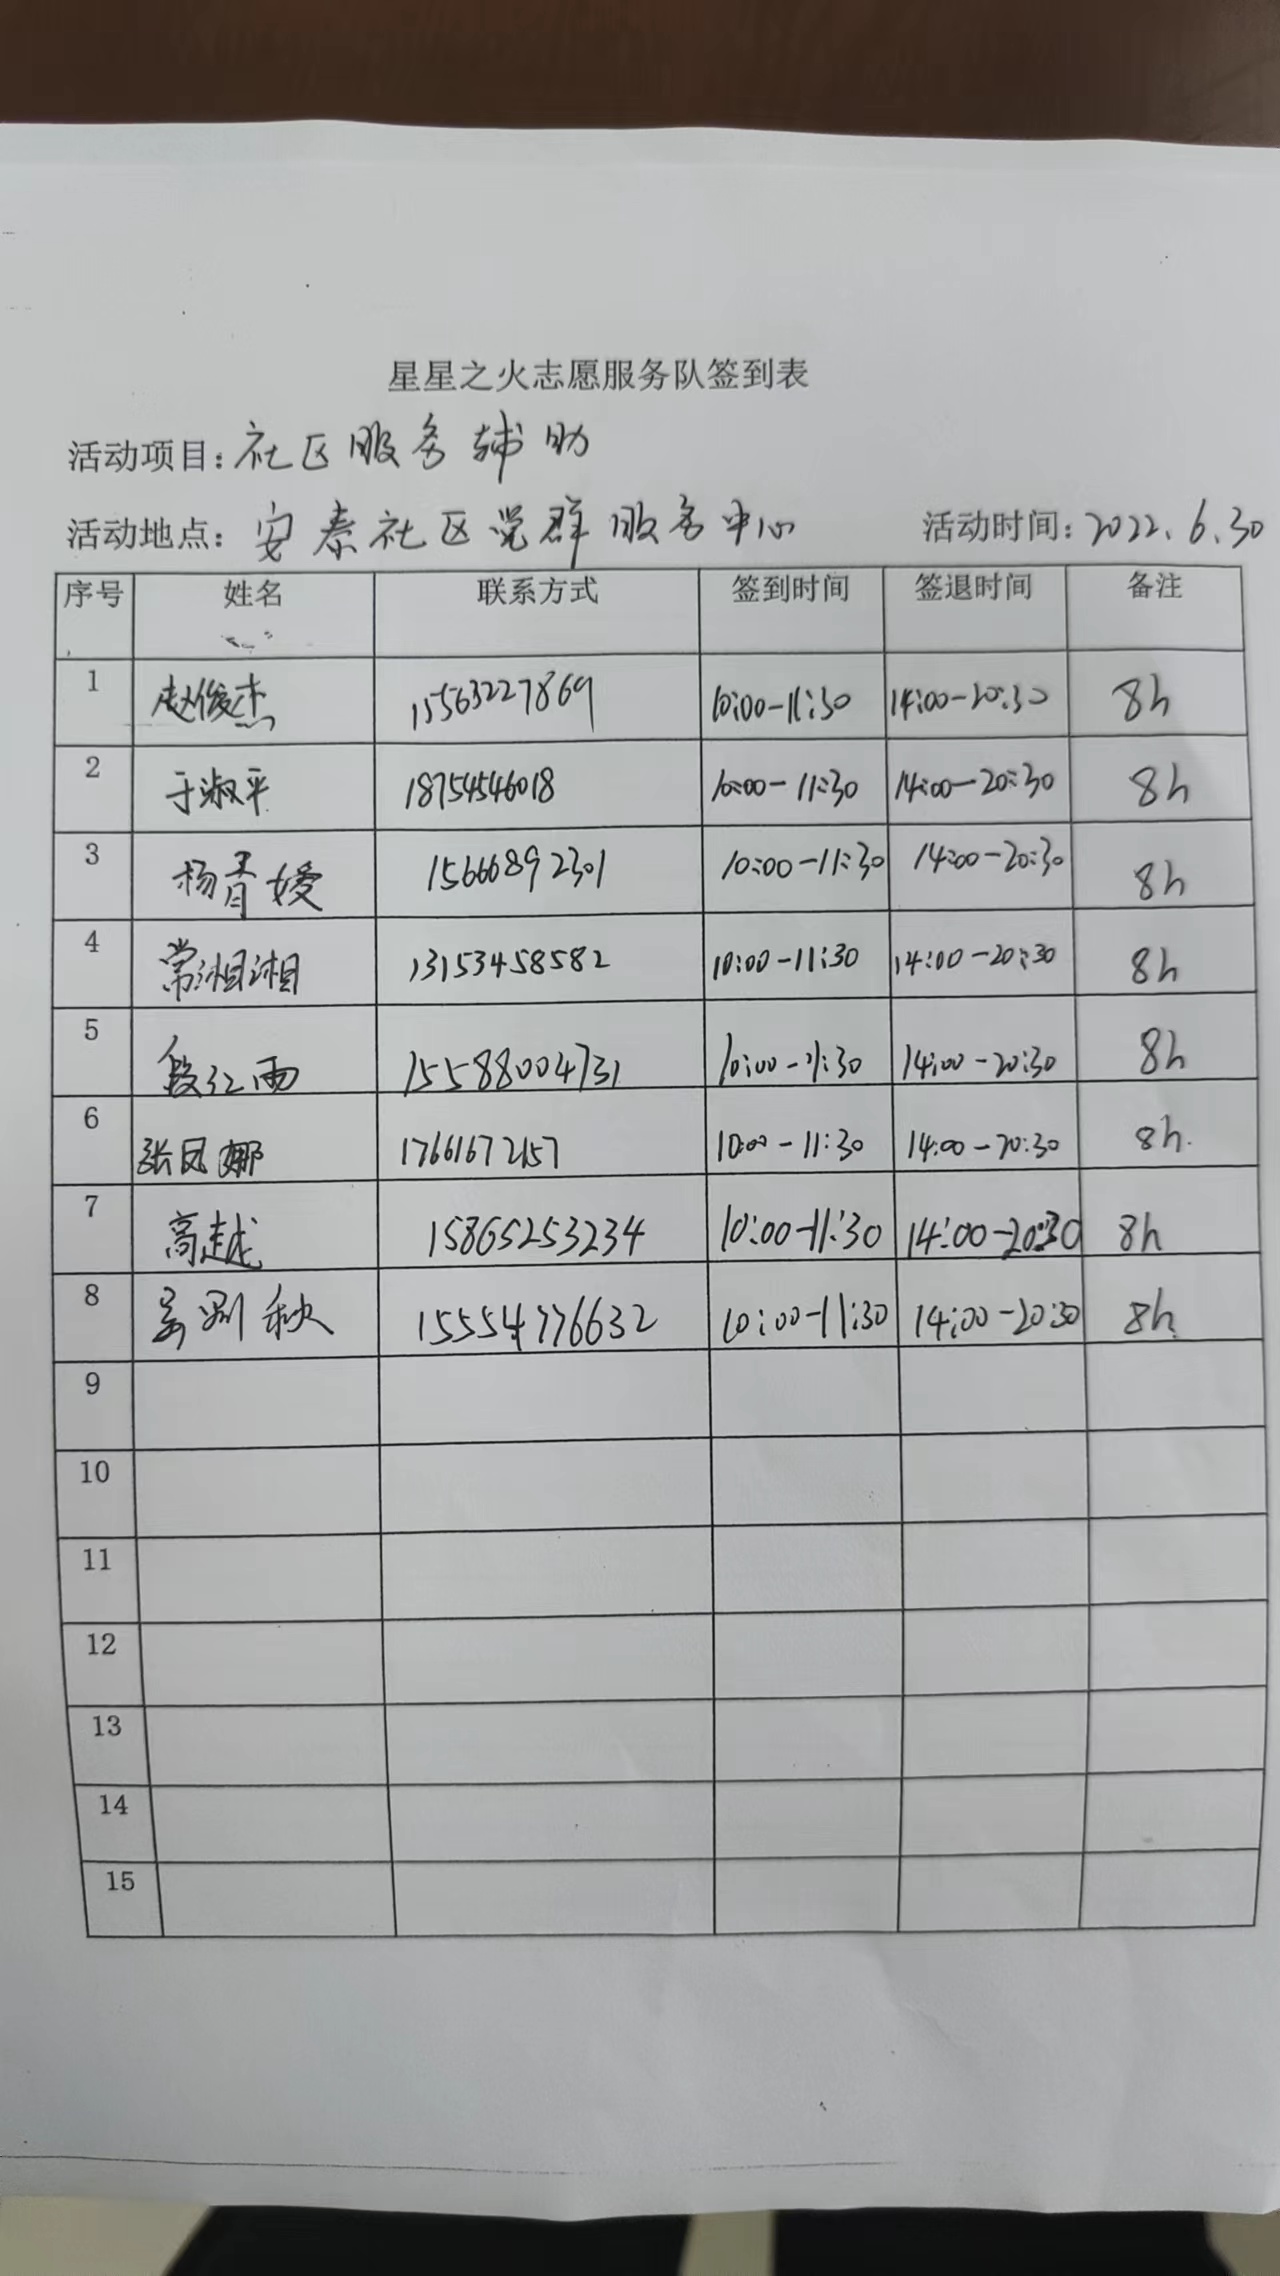 星星之火志愿服务队签到表
活动项目：社区服务辅助
活动地点：安泰社区党群服务中心 活动时间：2022.6.30
序号 姓名 联系方式 签到时间 签退时间 备注
1 赵俊杰 15563227869 10:00-11:30 14:00-20:30 8h
2 于淑平 18754546018 10:00-11:30 14:00-20:30 8h
3 杨青嫒 15666892301 10:00-11:30 14:00-20:30 8h
4 常湘湘 13153458582 10:00-11:30 14:00-20:30 8h
5 段江雨 15588004731 10:00-11:30 14:00-20:30 8h
6 张凤娜 17661672157 10:00-11:30 14:00-20:30 8h.
7 高越 15865253234 10:00-11:30 14:00-20:30 8h
8 15554776632 10:00-11:30 14:00-20:30 8h
9
10
11
12
13
14
15